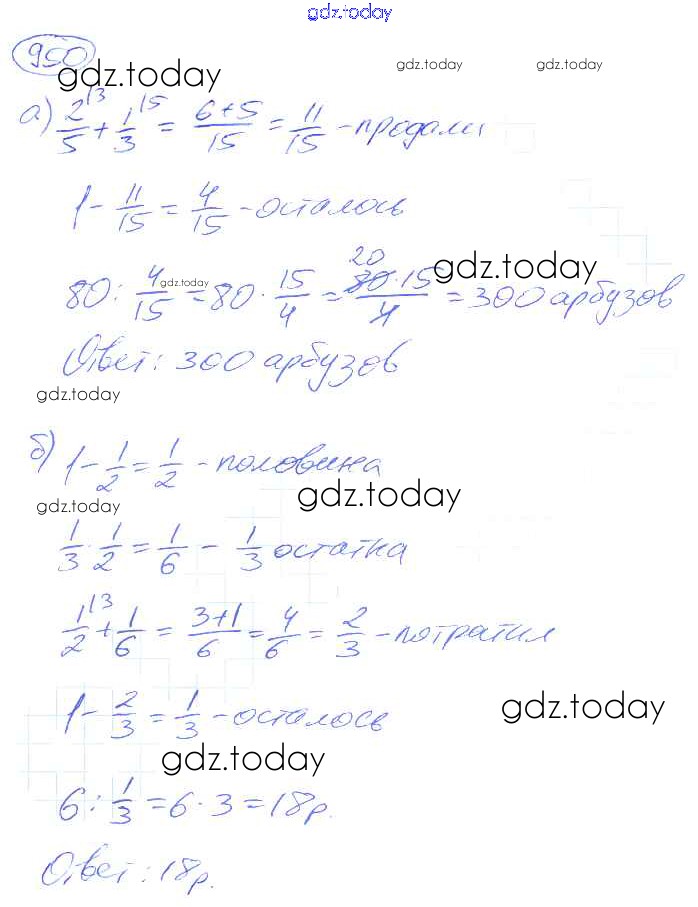 gdz.today
950
gdz.today
gdz.today gdz.today
а) 2/5 |3 + 1/3 |5 = (6+5)/15 = 11/15 - продали
1 - 11/15 = 4/15 - осталось
gdz.today
80 : 4/15 = 80 · 15/4 = (80·15)/4 = 300 арбузов
20
gdz.today
Ответ: 300 арбузов
gdz.today
б) 1 - 1/2 = 1/2 - половина
gdz.today
gdz.today
1/3 · 1/2 = 1/6 - 1/3 остатка
1/2 |3 + 1/6 = (3+1)/6 = 4/6 = 2/3 - потратил
gdz.today
1 - 2/3 = 1/3 - осталось
gdz.today
6 : 1/3 = 6 · 3 = 18 р.
Ответ: 18 р.